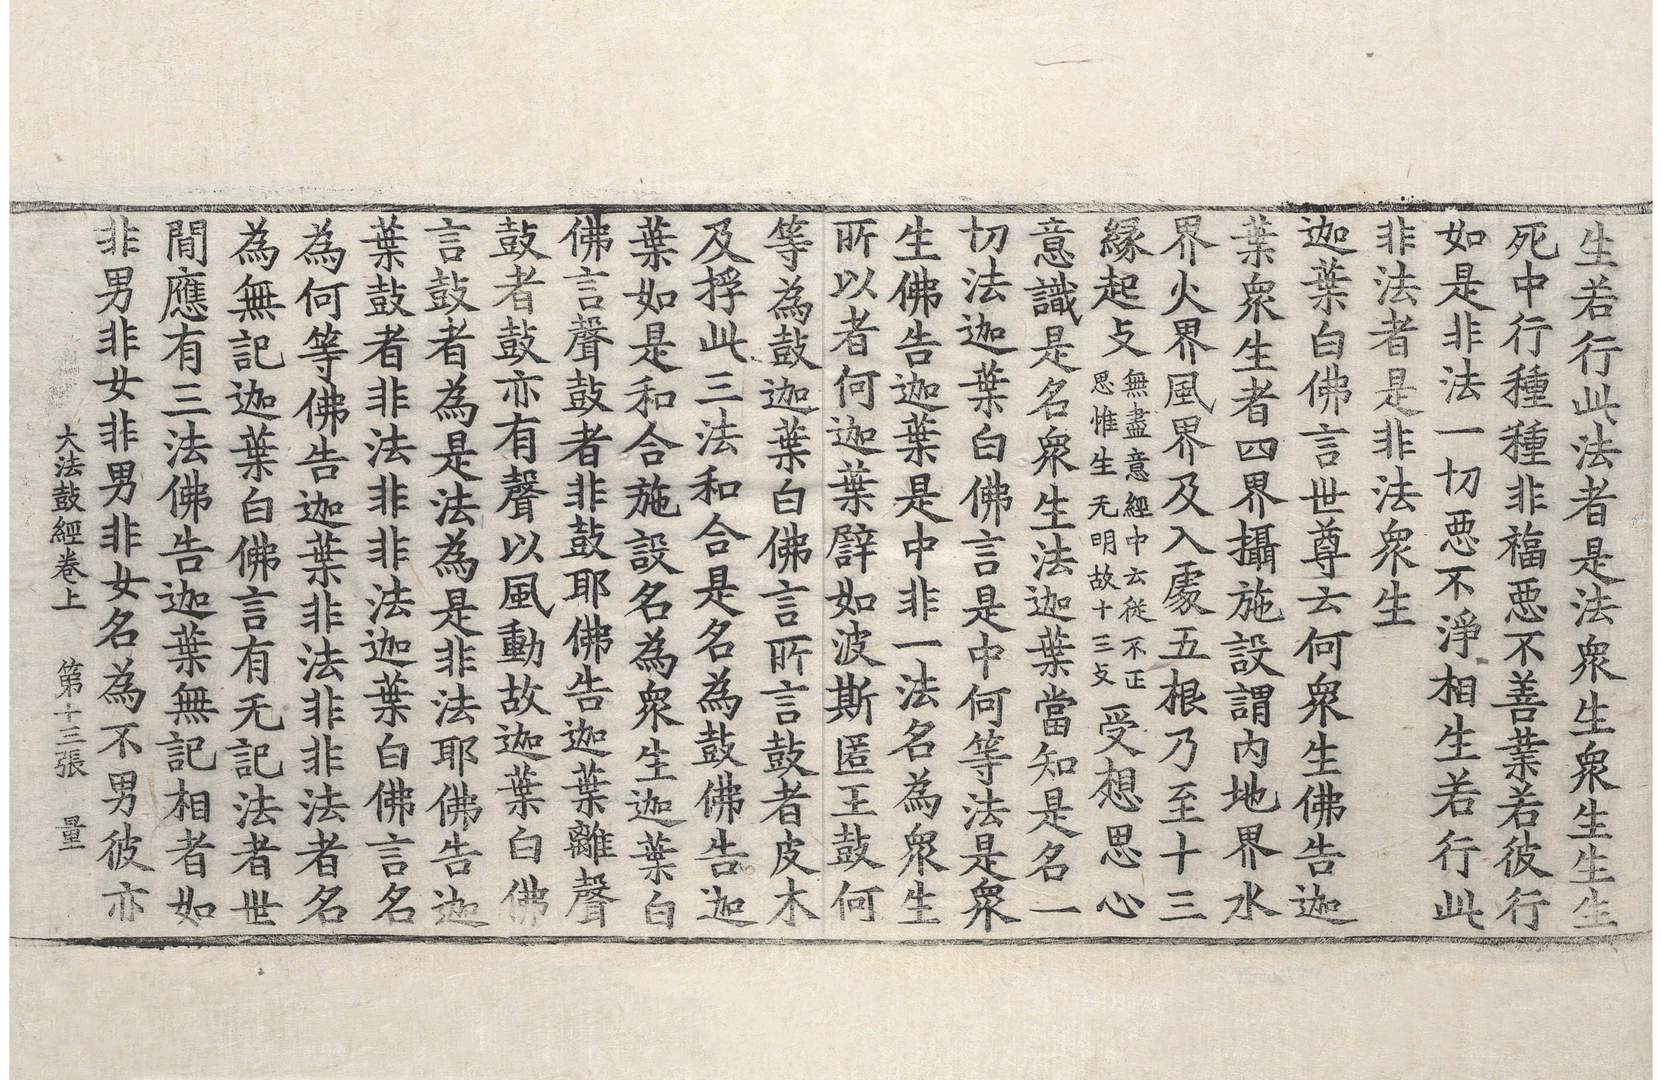 生若行此法者是法衆生衆生生生
死中行種種非福惡不善業若彼行
如是非法一切惡不淨相生若行此
非法者是非法衆生
迦葉白佛言世尊云何衆生佛告迦
葉衆生者四界攝施設謂内地界水
界火界風界及入處五根乃至十三
縁起攴無盡意經中云從不正思惟生无明故十三攴受想思心
意識是名衆生法迦葉當知是名一
切法迦葉白佛言是中何等法是衆
生佛告迦葉是中非一法名為衆生
所以者何迦葉譬如波斯匿王鼓何
等為鼓迦葉白佛言所言鼓者皮木
及捊此三法和合是名為鼓佛告迦
葉如是和合施設名為衆生迦葉白
佛言聲鼓者非鼓耶佛告迦葉離聲
鼓者鼓亦有聲以風動故迦葉白佛
言鼓者為是法為是非法耶佛告迦
葉鼓者非法非非法迦葉白佛言名
為何等佛告迦葉非法非非法者名
為無記迦葉白佛言有无記法者世
間應有三法佛告迦葉無記相者如
非男非女非男非女名為不男彼亦
大法鼓經卷上 第十三張 量